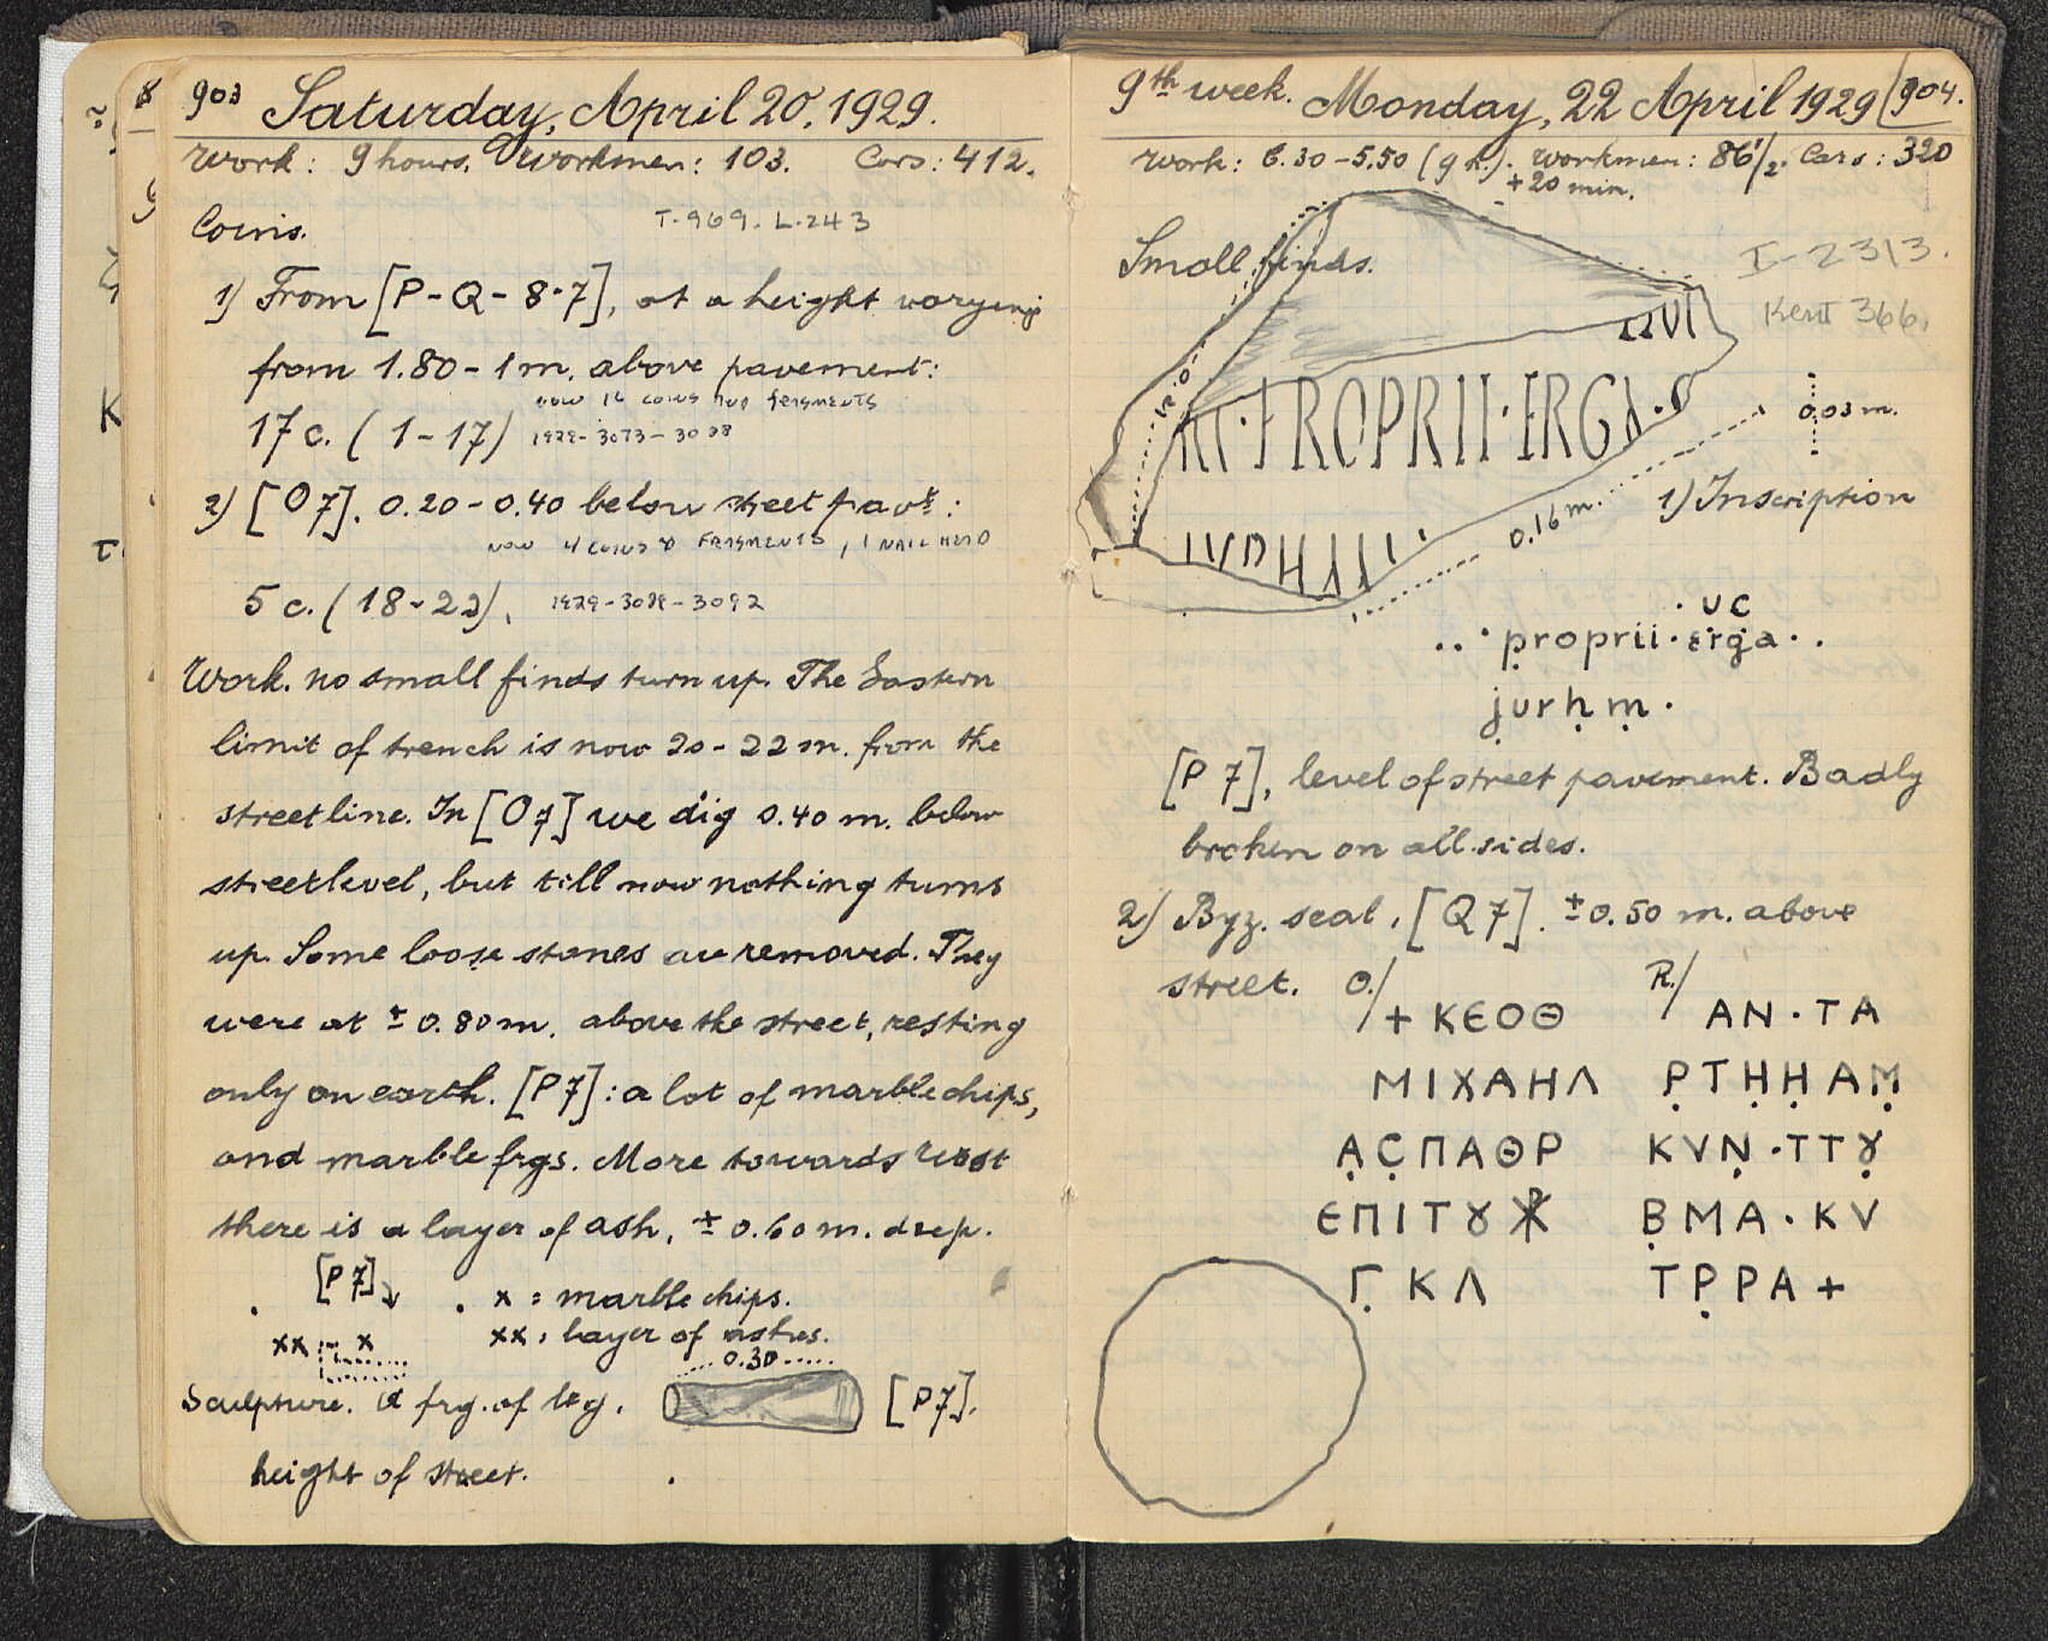 903 Saturday, April 20, 1929.
Work: 9 hours. Workmen: 103. Cars: 412.
T.969. L.243
Coins.
1) From [P-Q-8-7], at a height varying
from 1.80-1m. above pavement:
now 16 coins two fragments
17 c. (1-17) 1929-3073-3088
2) [O7]. 0.20-0.40 below street pavt:
now 4 coins & fragments, 1 nail head
5 c. (18-22). 1929-3089-3092
Work. no small finds turn up. The Eastern
limit of trench is now 20-22 m. from the
streetline. In [O7] we dig 0.40 m. below
streetlevel, but till now nothing turns
up. Some loose stones are removed. They
were at ± 0.80 m. above the street, resting
only on earth. [P7]: a lot of marble chips,
and marble frgs. More towards West
there is a layer of ash, ± 0.60 m. deep.
[P7]
x = marble chips.
xx x
xx = layer of ashes.
0.30
Sculpture. a frg. of leg. [P7].
height of street.
9th week. Monday, 22 April 1929 904.
Work: 6.30-5.50 (9 h.). Workmen: 86 1/2. Cars: 320
+20 min.
Small finds.
I-2313.
Kent 366.
PROPRII·ERGA·
0.03 m.
0.16 m.
1) Inscription
. uc
.. . proprii·erga..
jurḥṃ.
[P7], level of street pavement. Badly
broken on all sides.
2) Byz. seal, [Q7]. ±0.50 m. above
street. O./ R./
+ ΚΕΟΘ ΑΝ·ΤΑ
ΜΙΧΑΗΛ Ρ̣ΤḤḤΑṂ
Ạς̣ΠΑΘΡ ΚVṆ·ΤΤȢ̣
ЄΠΙΤȢ☧ ḄΜΑ·ΚV
Γ̣ΚΛ ΤΡ̣ΡΑ+